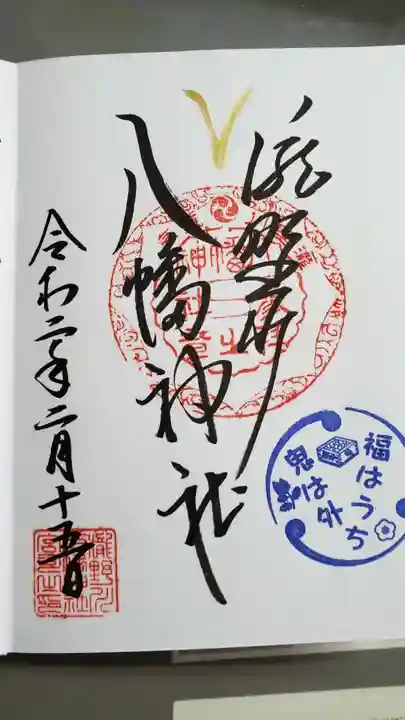 瀧野川
八幡神社
令和二年二月十五日
福はうち
鬼は外